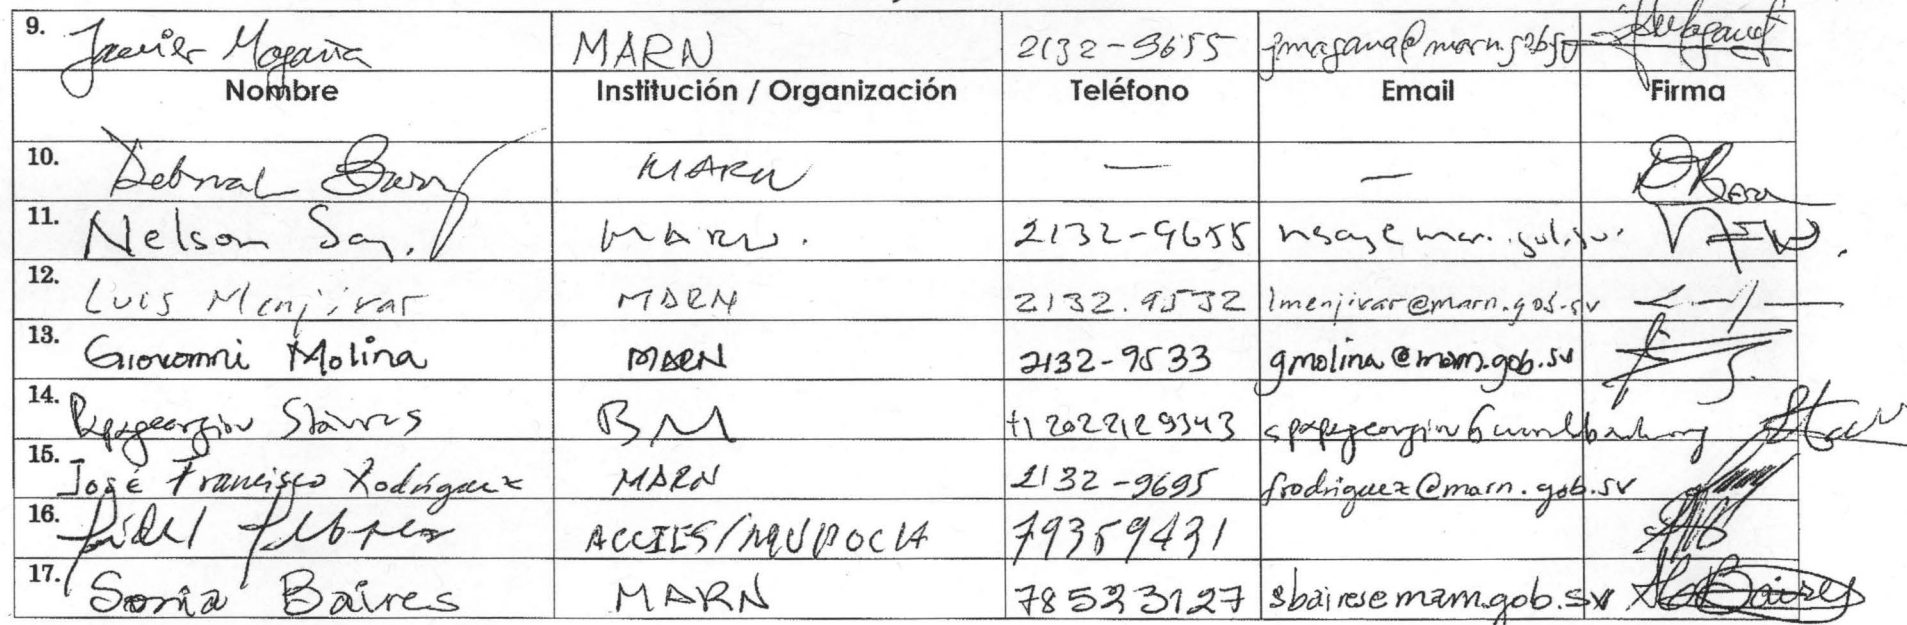 9. Javier Magaña MARN 2132-9655 jmagana@marn.gob.sv
Nombre Institución / Organización Teléfono Email Firma
10. Deborah Barry MARN — —
11. Nelson Say. MARN. 2132-9655
12. Luis Menjivar MARN 2132.9532 lmenjivar@marn.gob.sv
13. Giovanni Molina MARN 2132-9533 gmolina@marn.gob.sv
14. Papageorgiou Stavros BM +1 2022129343
15. José Francisco Rodriguez MARN 2132-9695 frodriguez@marn.gob.sv
16. 79359431
17. Sonia Baires MARN 78523127 sbaires@marn.gob.sv